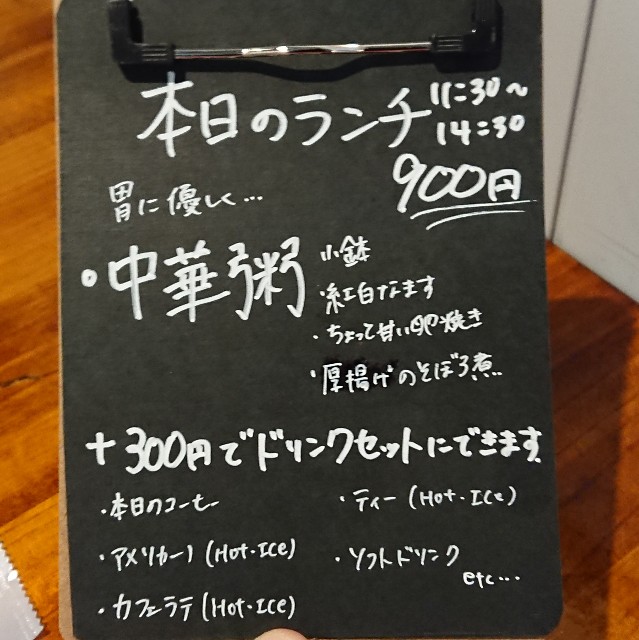 本日のランチ 11:30～14:30
900円
胃に優しく…
・中華粥
小鉢
・紅白なます
・ちょって甘い卵焼き
・厚揚げのそぼろ煮..
+300円でドリンクセットにできます
・本日のコーヒー
・ティー (Hot・Ice)
・アメリカーノ (Hot・Ice)
・ソフトドリンク
etc...
・カフェラテ (Hot・Ice)